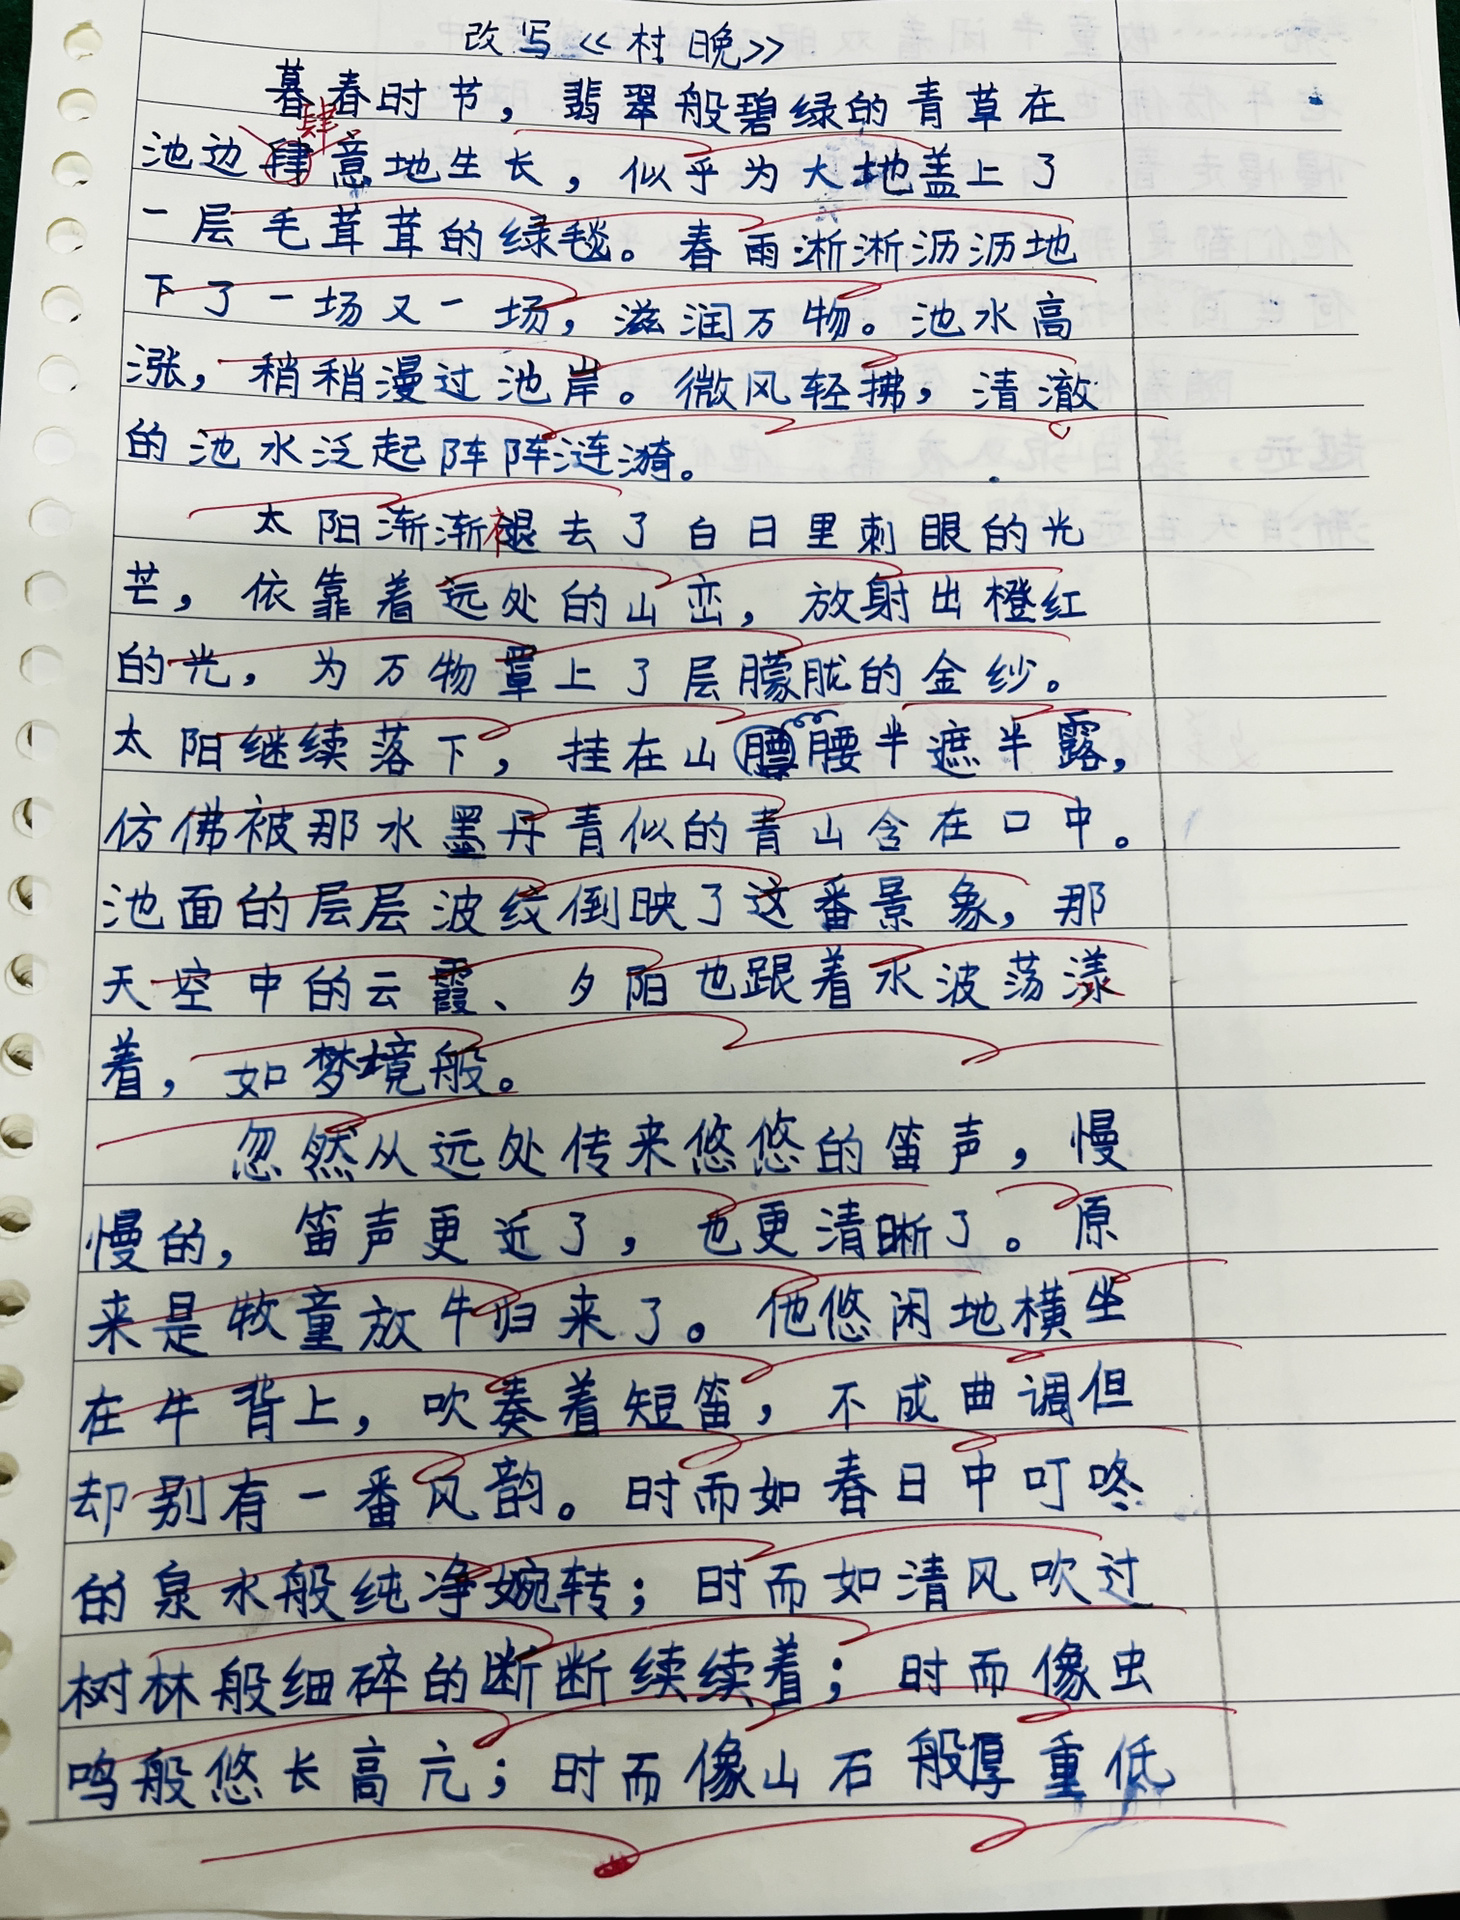 改写《村晚》
暮春时节，翡翠般碧绿的青草在
肆
池边肆意地生长，似乎为大地盖上了
一层毛茸茸的绿毯。春雨淅淅沥沥地
下了一场又一场，滋润万物。池水高
涨，稍稍漫过池岸。微风轻拂，清澈
的池水泛起阵阵涟漪。
太阳渐渐褪去了白日里刺眼的光
芒，依靠着远处的山峦，放射出橙红
的光，为万物罩上了层朦胧的金纱。
太阳继续落下，挂在山腰半遮半露，
仿佛被那水墨丹青似的青山含在口中。
池面的层层波纹倒映了这番景象，那
天空中的云霞、夕阳也跟着水波荡漾
着，如梦境般。
忽然从远处传来悠悠的笛声，慢
慢的，笛声更近了，也更清晰了。原
来是牧童放牛归来了。他悠闲地横坐
在牛背上，吹奏着短笛，不成曲调但
却别有一番风韵。时而如春日中叮咚
的泉水般纯净婉转；时而如清风吹过
树林般细碎的断断续续着；时而像虫
鸣般悠长高亢；时而像山石般厚重低